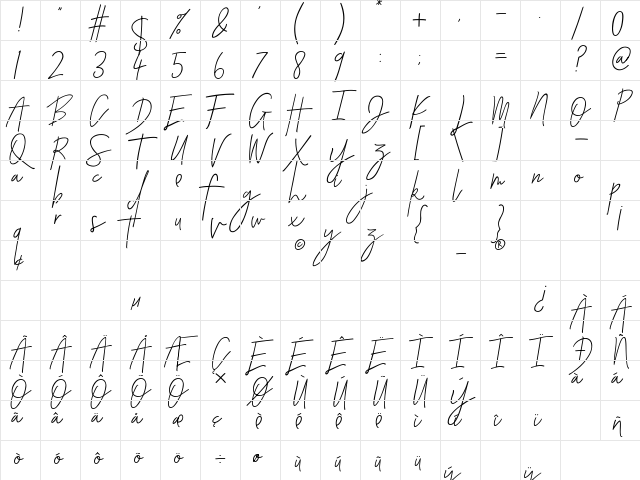 ! " # $ % & ' ( ) * + , - . / 0
1 2 3 4 5 6 7 8 9 : ; = ? @
A B C D E F G H I J K L M N O P
Q R S T U V W X Y Z [ \ ] _
a b c d e f g h i j k l m n o p
q r s t u v w x y z { }
¢ © _ ®
µ ¿ À Á
Â Ã Ä Å Æ Ç È É Ê Ë Ì Í Î Ï Ð Ñ
Ò Ó Ô Õ Ö × Ø Ù Ú Û Ü Ý à á
â ã ä å æ ç è é ê ë ì í î ï ñ
ò ó ô õ ö ÷ ø ù ú û ü ý ÿ